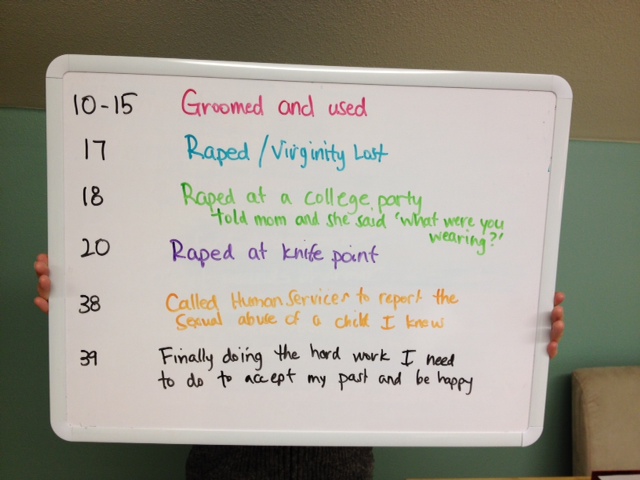 10-15 Groomed and used
17 Raped / Virginity Lost
18 Raped at a college party
told mom and she said 'what were you
wearing?'
20 Raped at knife point
38 Called Human Services to report the
sexual abuse of a child I know
39 Finally doing the hard work I need
to do to accept my past and be happy